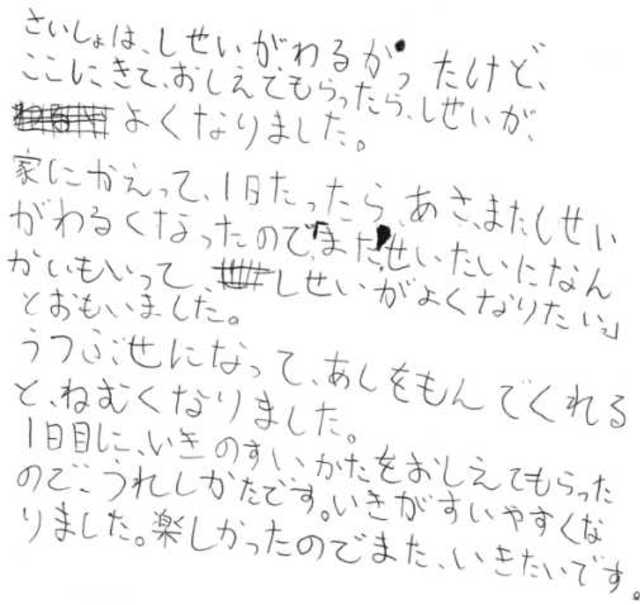 さいしょは、しせいがわるかったけど、
ここにきて、おしえてもらったら、しせいが、
よくなりました。
家にかえって、1日たったら、あさ、またしせい
がわるくなったので「また、せいたいになん
かいもいって、しせいがよくなりたい」
とおもいました。
うつぶせになって、あしをもんでくれる
と、ねむくなりました。
1日目に、いきのすいかたをおしえてもらった
ので、うれしかたです。いきがすいやすくな
りました。楽しかったのでまた、いきたいです。